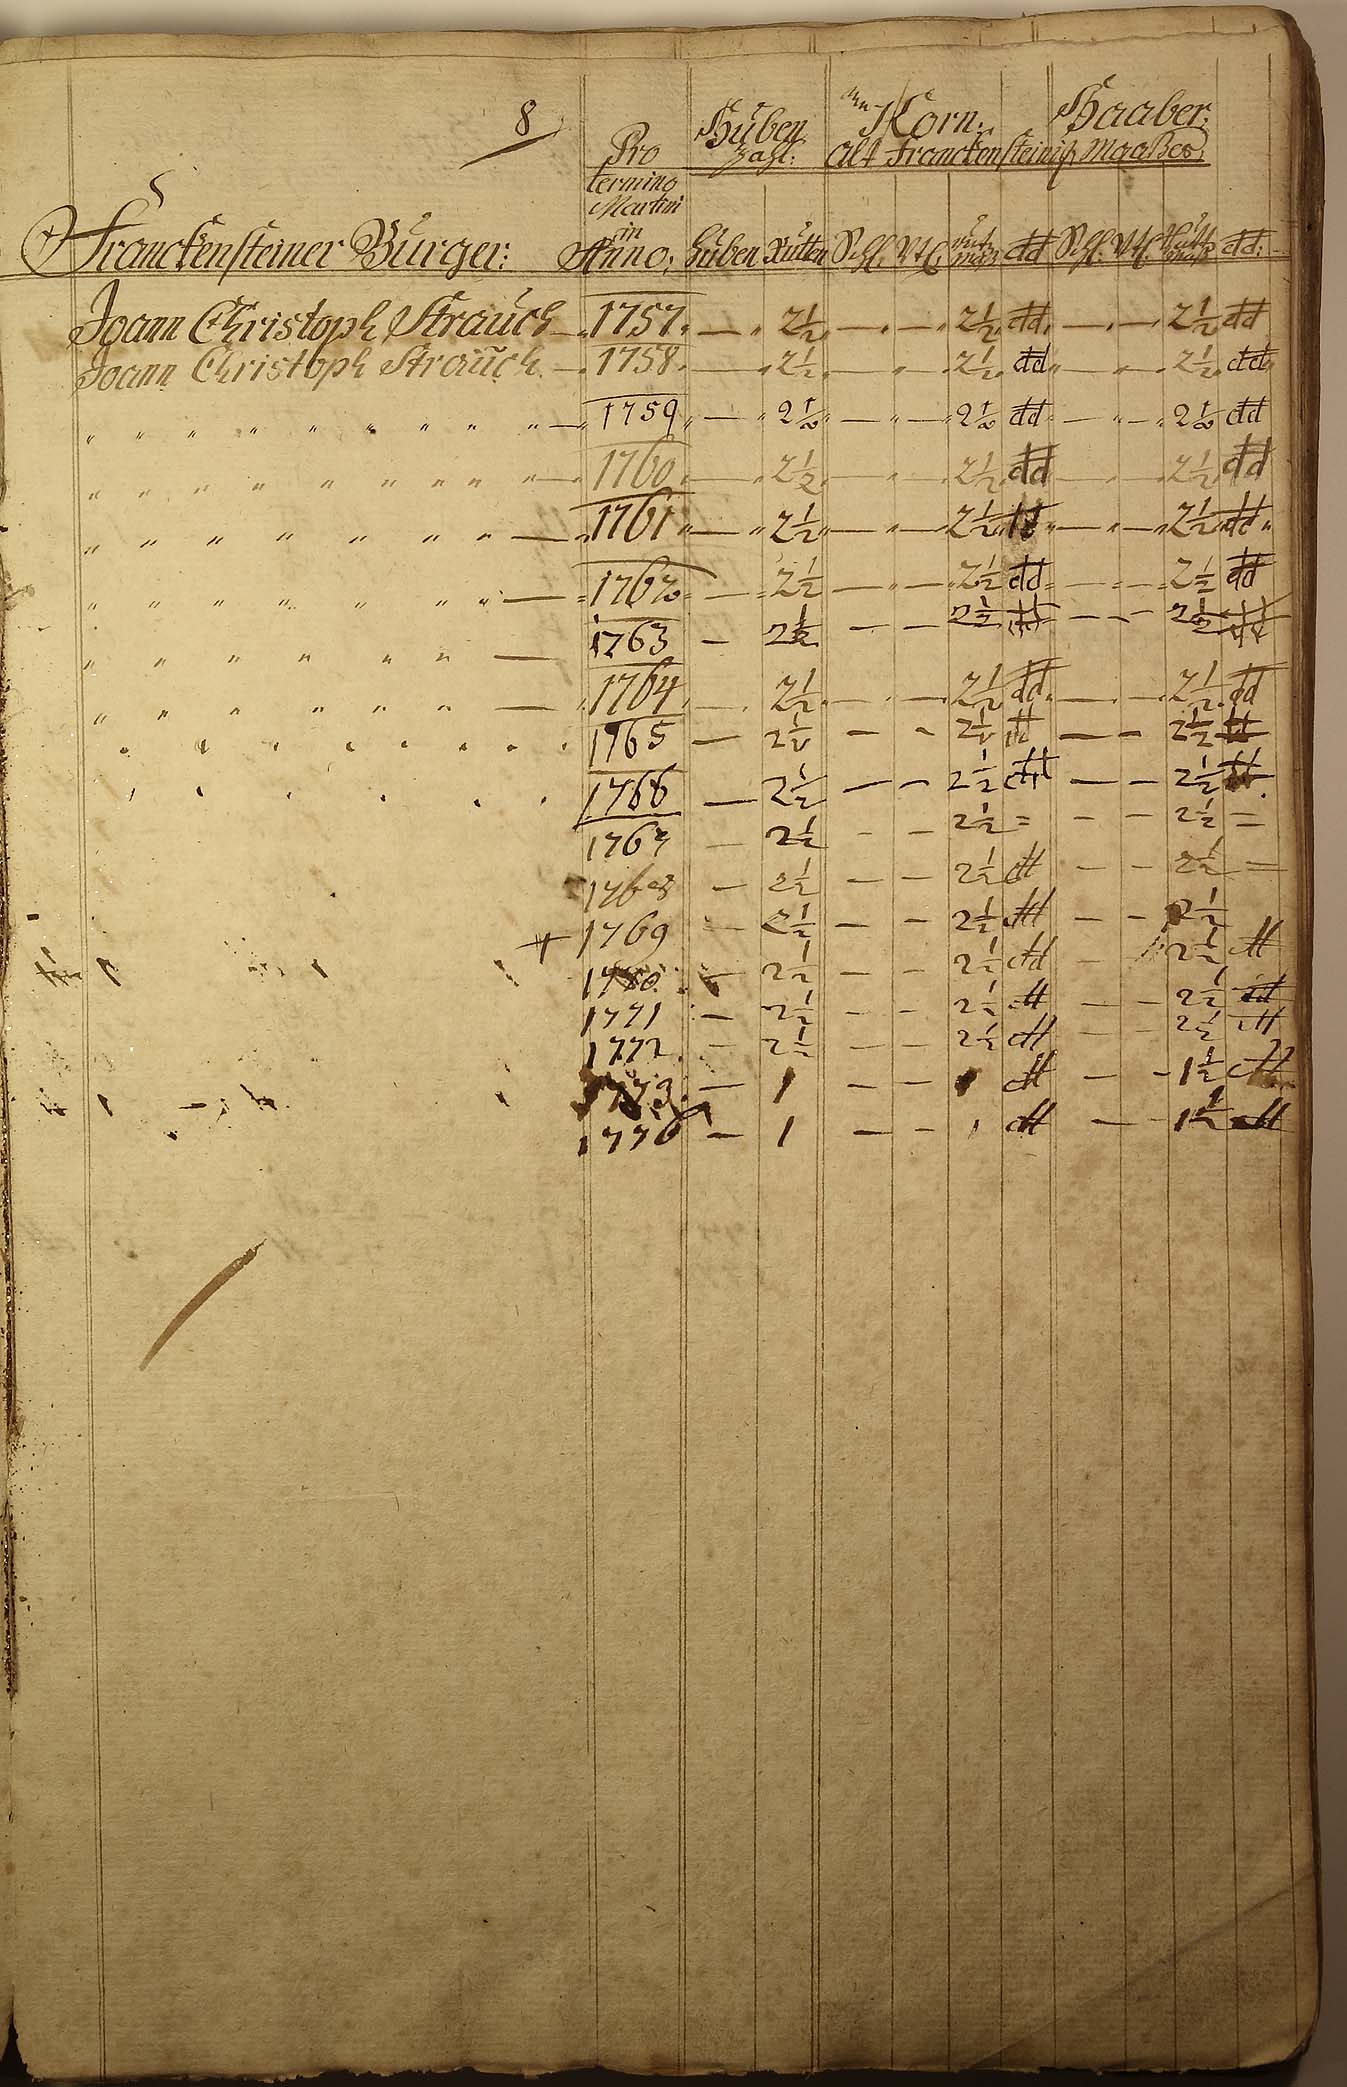 8
Pro termino Martini in Anno: Huben Zahl: An Korn: Haaber:
Alt Franckensteinisch Maaßes:
Franckensteiner Bürger: Huben Rutten Schl. Vtl. dd Schl. Vtl. dd:
Joann Christoph Strauch — 1757. — " 2 1/2 — " — 2 1/2 dd — " — 2 1/2 dd
Joann Christoph Strauch — 1758. — " 2 1/2 — " — 2 1/2 dd — " — 2 1/2 dd
" " " " " " " " " " — 1759 — " 2 1/2 — " — 2 1/2 dd — " — 2 1/2 dd
" " " " " " " " " " — 1760 — " 2 1/2 — " — 2 1/2 dd — " — 2 1/2 dd
" " " " " " " " — 1761 — " 2 1/2 — " — 2 1/2 — " — 2 1/2 dd
" " " " " " " " — 1762 — 2 1/2 — " — 2 1/2 dd — — 2 1/2 dd
" " " " " " " — 1763 — 2 1/2 — — 2 1/2 dd — — 2 1/2 dd
" " " " " " " — 1764 — 2 1/2 — — 2 1/2 dd — — 2 1/2 dd
" " " " " " " " " 1765 — 2 1/2 — — 2 1/2 dd — — 2 1/2 dd
" " " " " " 1766 — 2 1/2 — — 2 1/2 dd — — 2 1/2 dd
1767 — 2 1/2 — — 2 1/2 = — — 2 1/2 =
1768 — 2 1/2 — — 2 1/2 dd — — 2 1/2 =
+ 1769 — 2 1/2 — — 2 1/2 dd — — 2 1/2
— 2 1/2 — — 2 1/2 dd — 2 1/2 dd
1771 — 2 1/2 — — 2 1/2 dd — — 2 1/2 dd
1772 — 2 1/2 — — 2 1/2 dd — — 2 1/2 dd
1773 — 1 — — 1 dd — — 1 1/2 dd
1776 — 1 — — 1 dd — — 1 1/2 dd